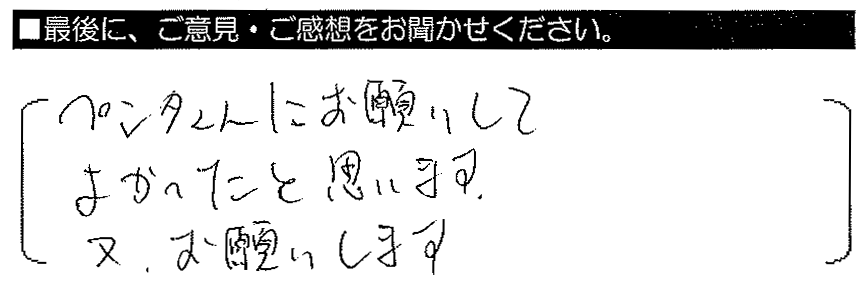 ■最後に、ご意見・ご感想をお聞かせください。
ペンタくんにお願いして
よかったと思います。
又、お願いします